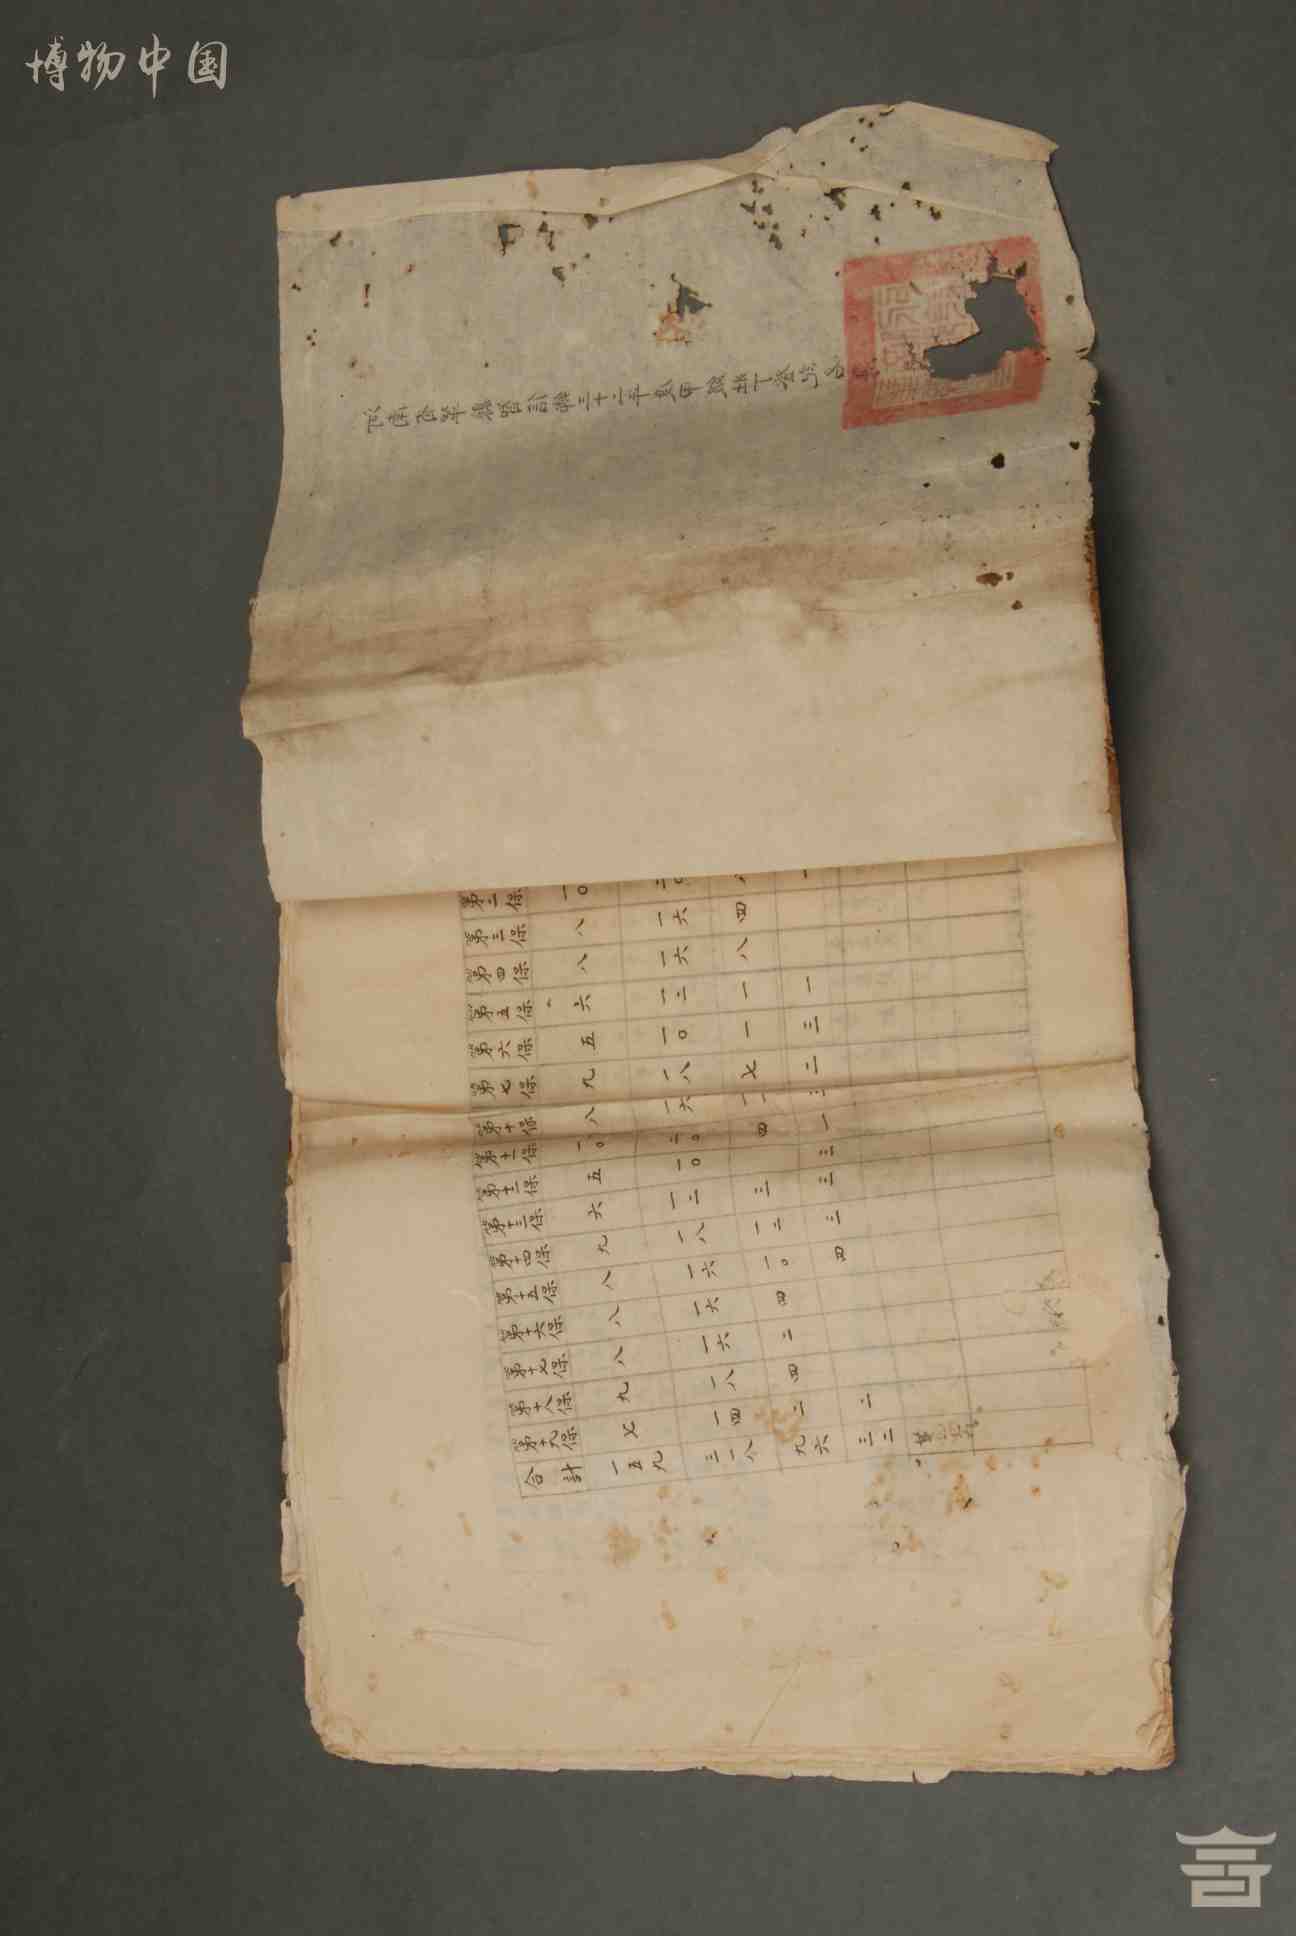 博物中国
三十二年度甲級壯丁
第二保 一〇 二〇 一
第三保 八 一六 四
第四保 八 一六 八
第五保 六 一二 一 一
第六保 五 一〇 一 三
第七保 九 一八 七 二
第十保 八 一六
第十一保 一〇 二〇 四 一
第十二保 五 一〇 三
第十三保 六 一二 三 三
第十四保 九 一八 一二 三
第十五保 八 一六 一〇 四
第十六保 八 一六 四
第十七保 八 一六 二
第十八保 九 一八 四
第十九保 七 一四 二 二
合計 一五九 三一八 九六 三二